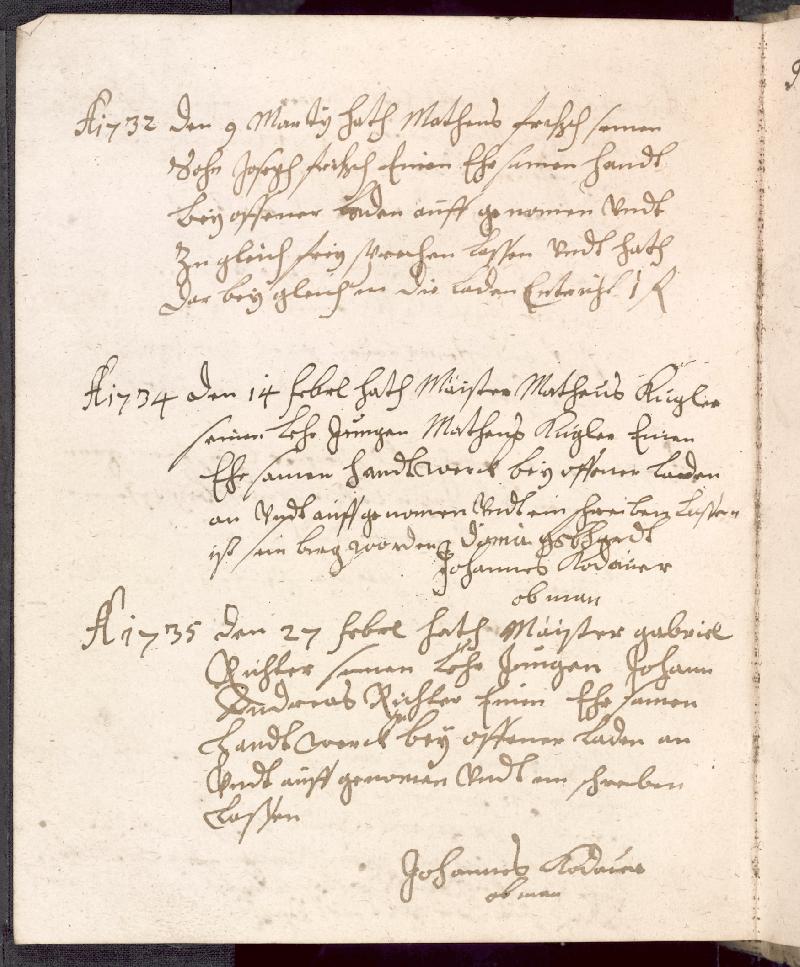 A 1732 den 9 Marty hath Matheus fritzsch seinen
Sohn Joseph fritzsch Einen Ehrsamen handt
bey offener Laden auff genomen Undt
Zu gleich frey sprechen Lassen Undt hath
dar bey gleich in die Laden Entricht 1 R
A 1734 den 14 febel hath Maister Matheus Kugler
seinen Lehr Jungen Matheus Kugler Einen
Ehrsamen handtwerck bey offener Laden
an Undt auff genomen Undt ein schreiben Lassen
ist sein birg worden
Johannes Kodauer
ob man
A 1735 den 27 febel hath Maister gabriel
Richter seinen Lehr Jungen Johann
Andreas Richter Einen Ehrsamen
handtwerck bey offener Laden an
Undt auff genomen Undt ein schreiben
Lassen
Johannes Kodauer
ob man